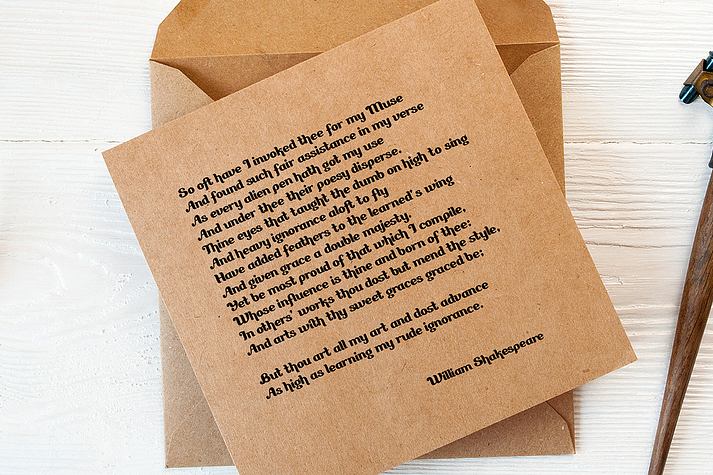 So oft have I invoked thee for my Muse
And found such fair assistance in my verse
As every alien pen hath got my use
And under thee their poesy disperse.
Thine eyes that taught the dumb on high to sing
And heavy ignorance aloft to fly
Have added feathers to the learned's wing
And given grace a double majesty.
Yet be most proud of that which I compile,
Whose influence is thine and born of thee:
In others' works thou dost but mend the style,
And arts with thy sweet graces graced be;
But thou art all my art and dost advance
As high as learning my rude ignorance.
William Shakespeare